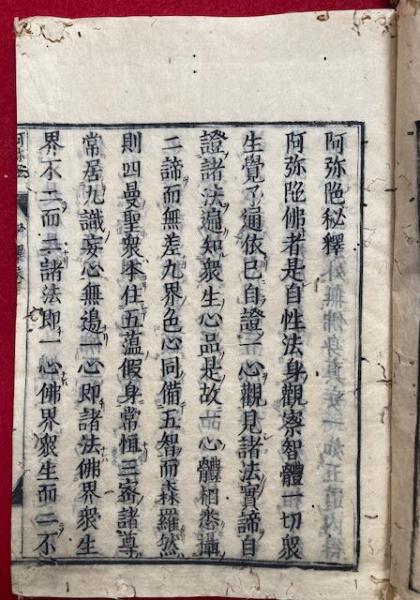 阿弥陀秘釋
阿弥陀佛者是自性法身觀察智體一切衆
生覺了通依已自證一心觀見諸法實諦自
證諸法遍知衆生心品是故一心體相悉攝
二諦而無差九界色心同備五智而森羅然
則四曼聖衆本住五蕴假身常恒三密諸尊
常居九識妄心無邊一心即諸法佛界衆生
界不二而二諸法即一心佛界衆生而二不